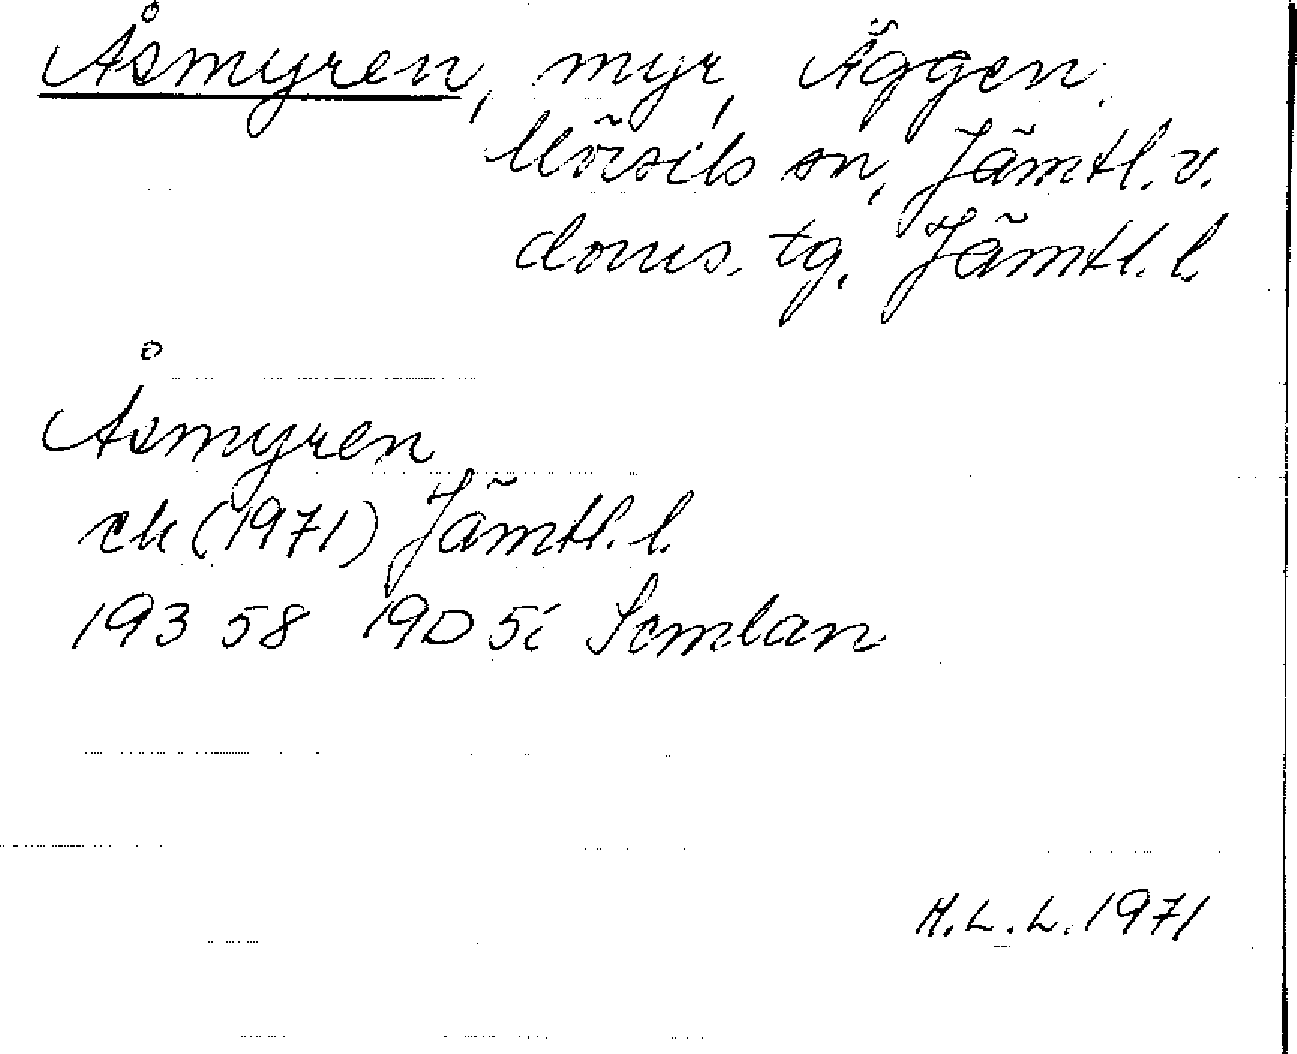 Åsmyren, myr, Äggen.
Mörsils sn, Jämtl. v.
doms. tg, Jämtl. l.
Åsmyren
ek (1971) Jämtl. l.
193 58 19D 5i Semlan
H.L.L. 1971